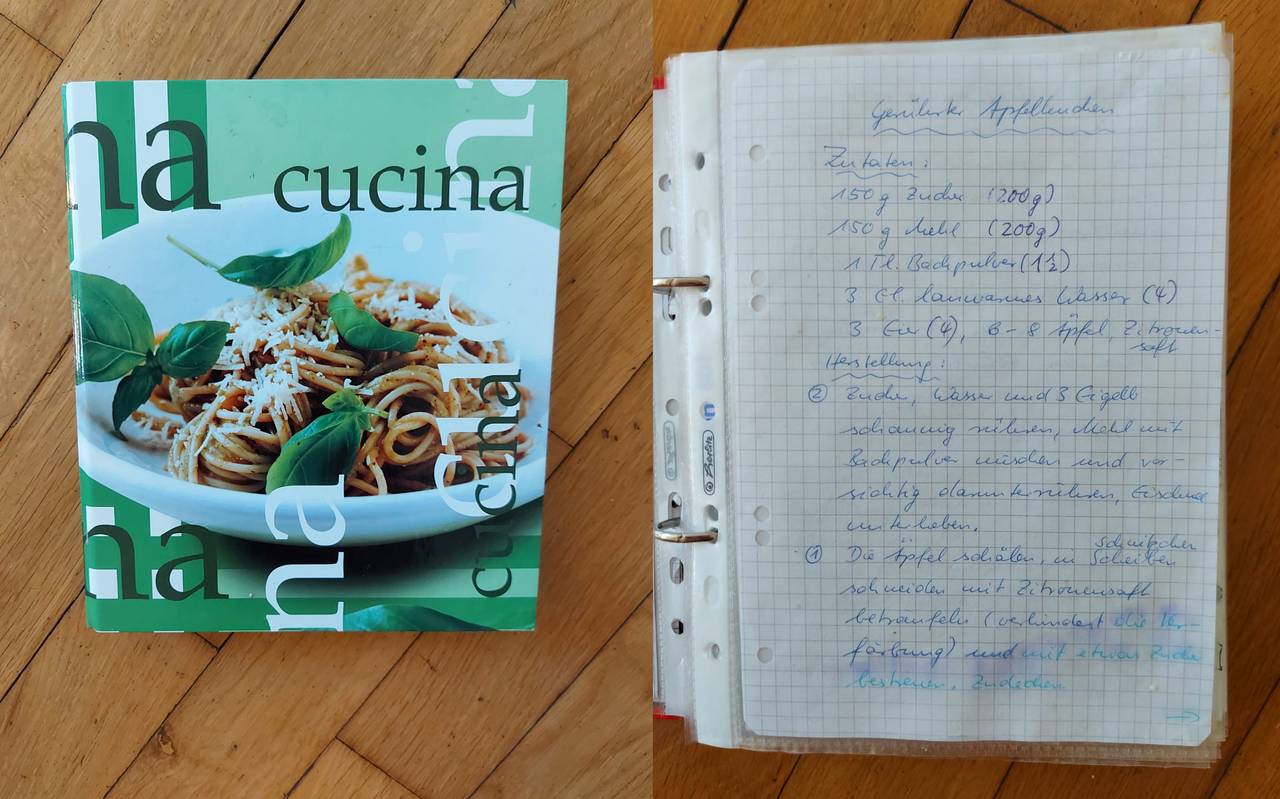 na
cucina
cucina
cucina
na
na
Gerührter Apfelkuchen
Zutaten:
150g Zucker (200g)
150g Mehl (200g)
1 Tl. Backpulver (1 1/2)
3 El. lauwarmes Wasser (4)
3 Eier (4), 6-8 Äpfel, Zitronen-
saft
Herstellung:
② Zucker, Wasser und 3 Eigelb
schaumig rühren, Mehl mit
Backpulver mischen und vor-
sichtig darunterrühren, Eischnee
unterheben.
schnitzchen
① Die Äpfel schälen, in Scheiben
schneiden mit Zitronensaft
beträufeln (verhindert die Ver-
färbung) und mit etwas Zucker
bestreuen. Zudecken
→
Herlitz